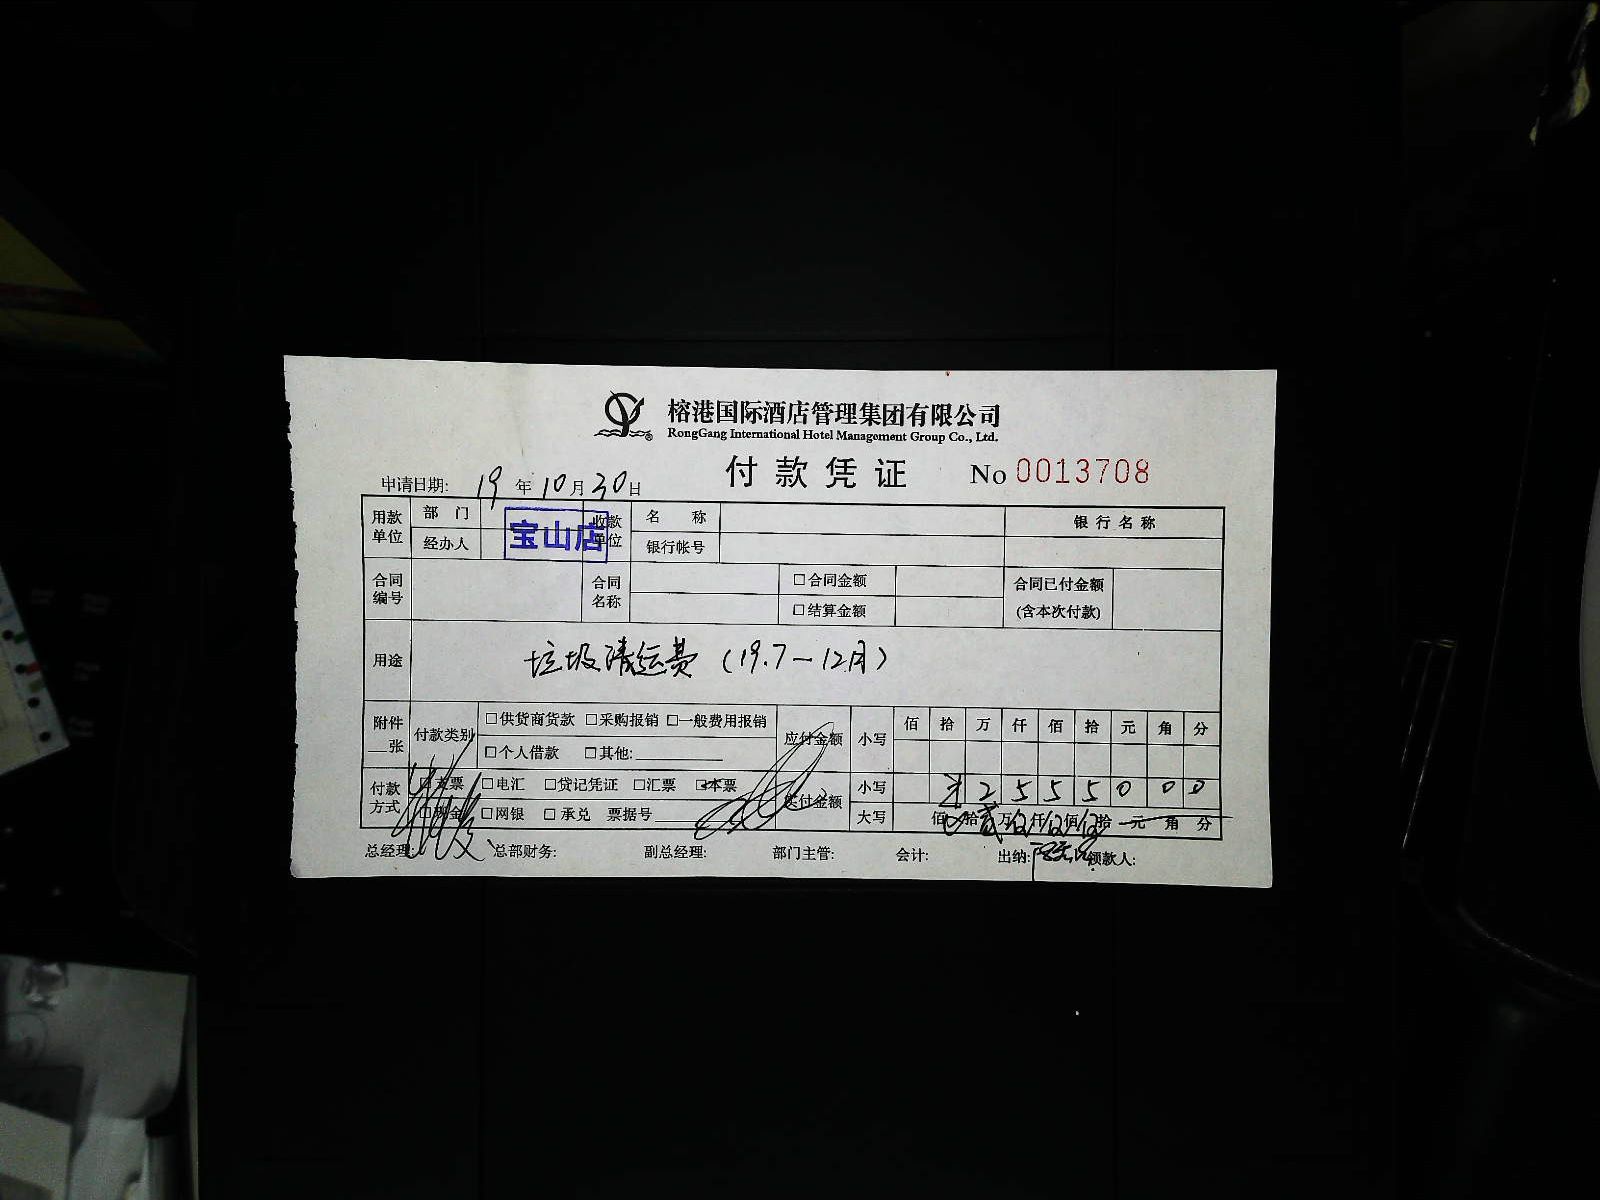 榕港国际酒店管理集团有限公司
RongGang International Hotel Management Group Co., Ltd.
付款凭证 No 0013708
申请日期: 19 年 10 月 30 日
用款单位 部门 宝山店 收款单位 名称 银行名称
经办人 银行帐号
合同编号 合同名称 □合同金额 合同已付金额
□结算金额 (含本次付款)
用途 垃圾清运费 (19.7—12月)
附件__张 付款类别 □供货商货款 □采购报销 □一般费用报销 应付金额 小写 佰 拾 万 仟 佰 拾 元 角 分
□个人借款 □其他:
付款方式 □支票 □电汇 □贷记凭证 □汇票 □本票 实付金额 小写 2 5 5 5 0 0 0
□现金 □网银 □承兑 票据号 大写 佰 拾 贰 万 伍 仟 伍 佰 伍 拾 元 角 分
总经理: 总部财务: 副总经理: 部门主管: 会计: 出纳: 领款人: